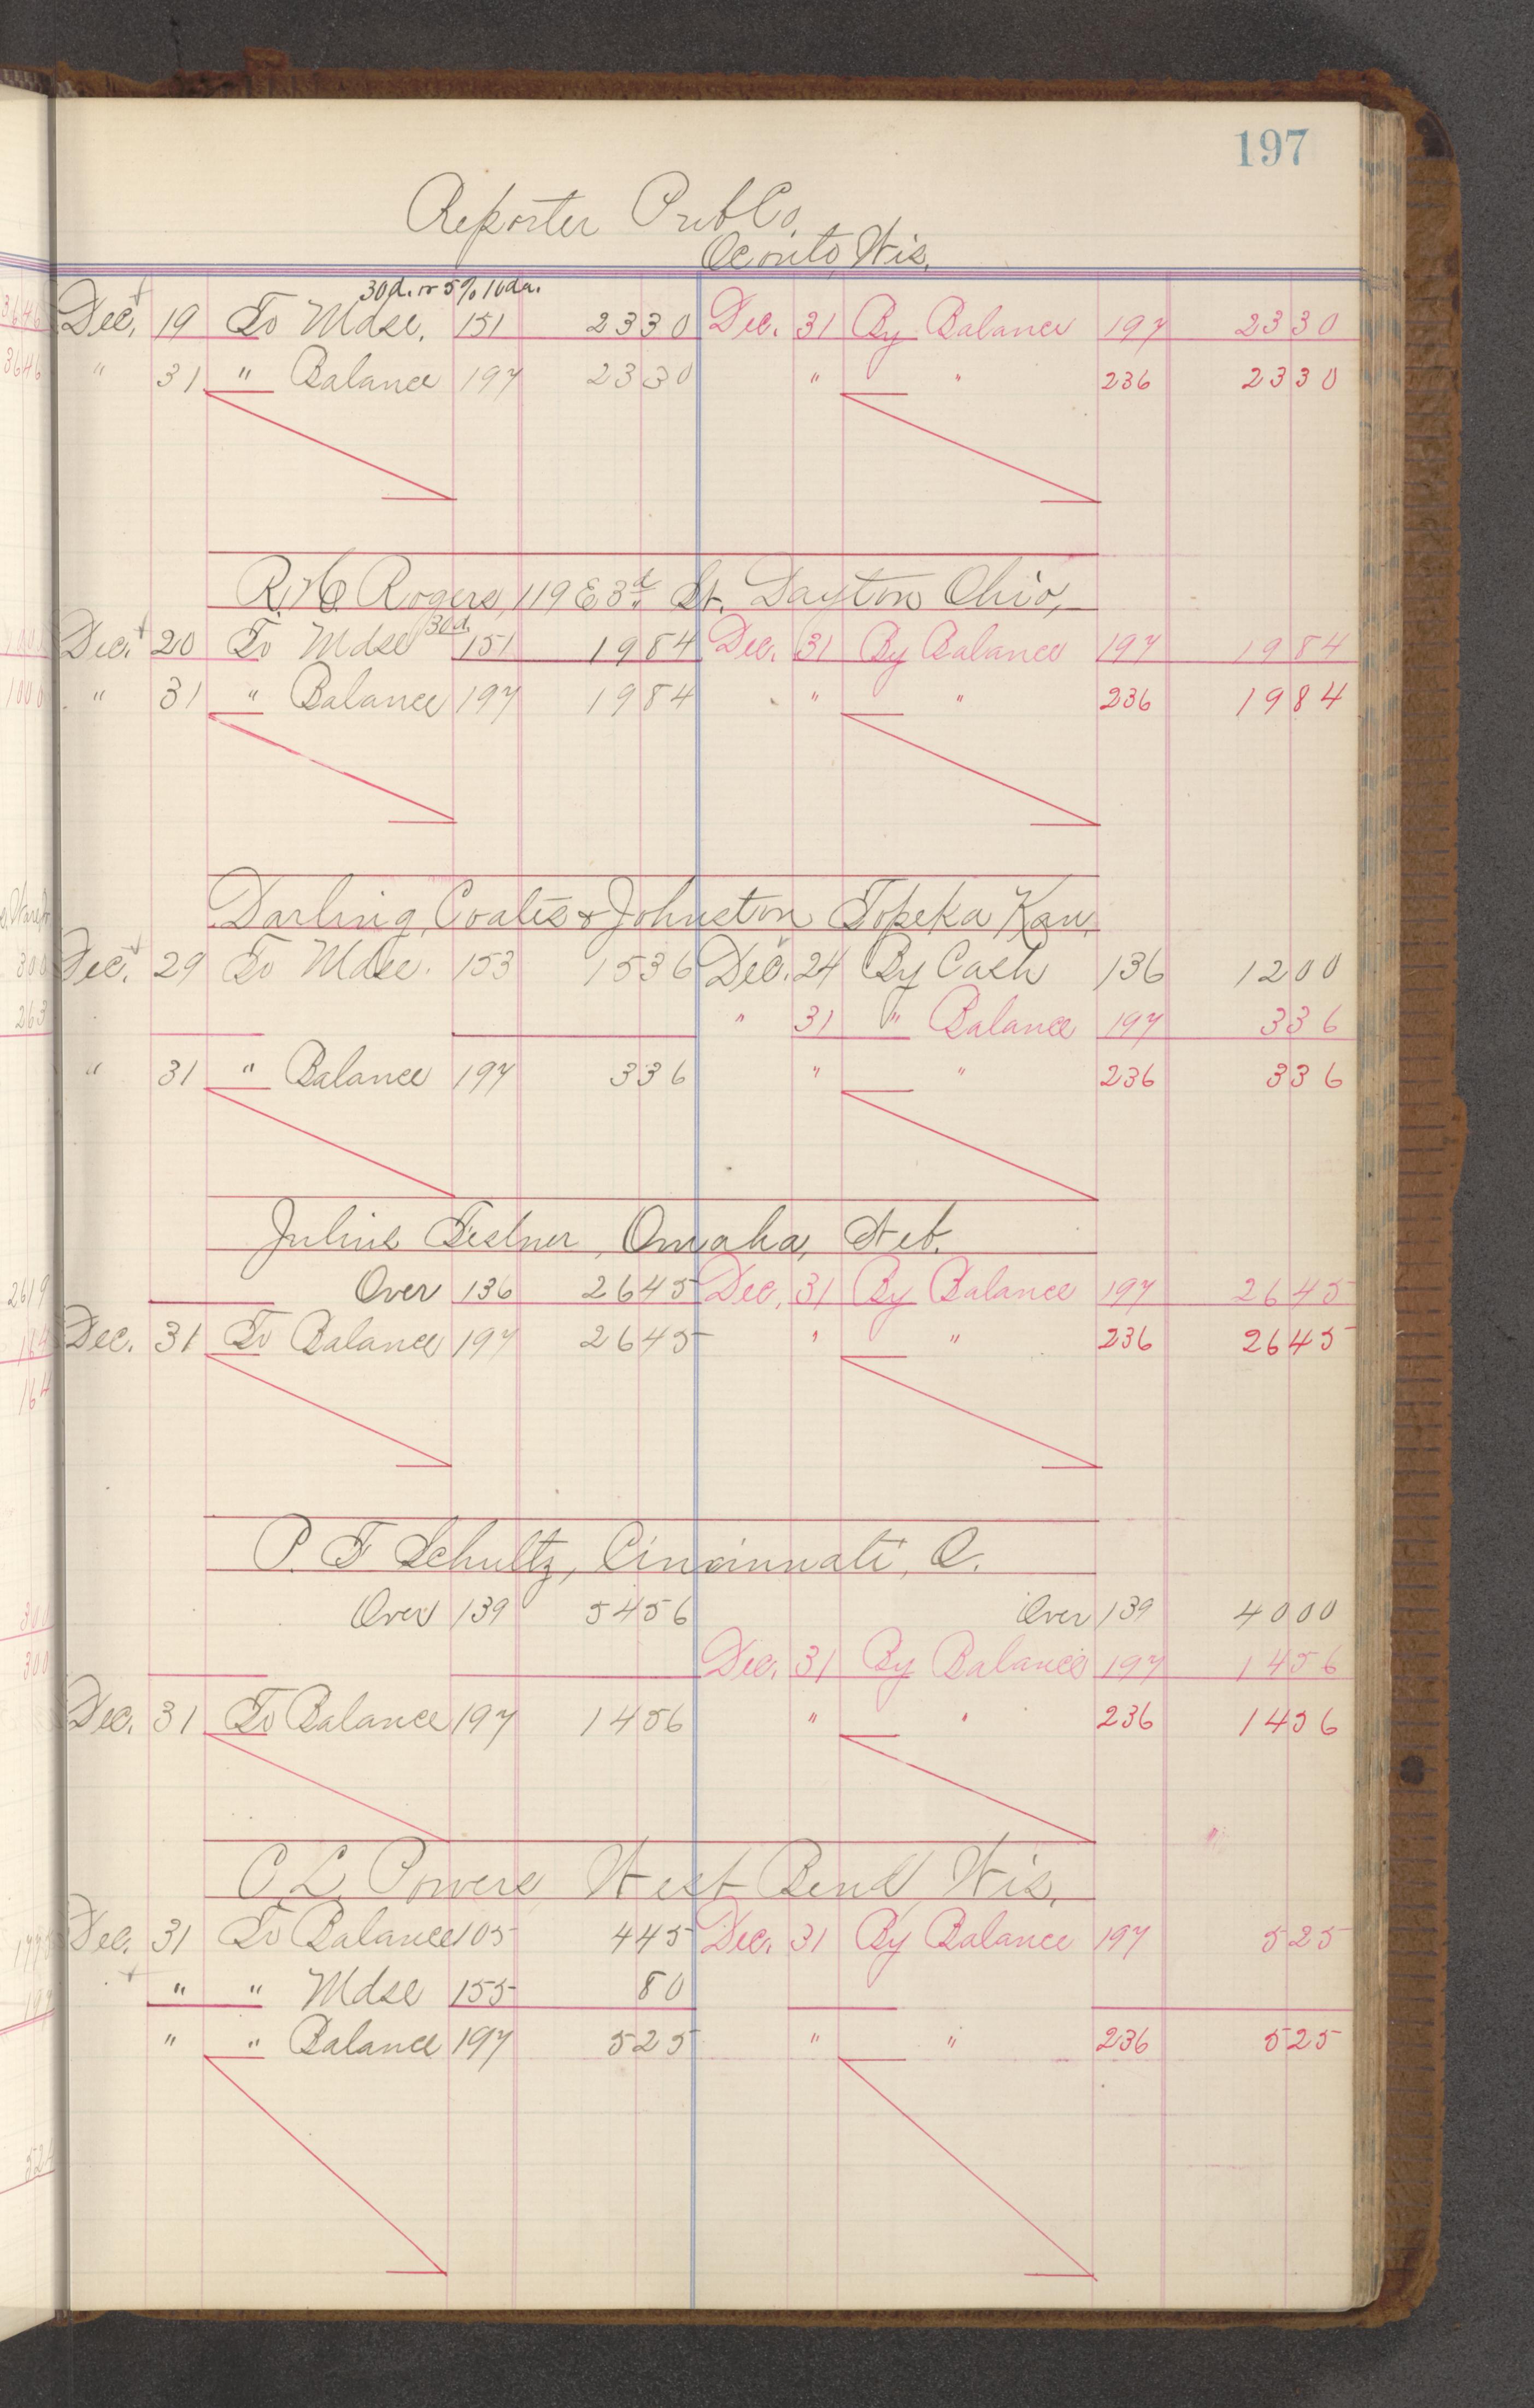 197
Reporter Pub Co.
Oconto, Wis.
30 d. or 5% 10 da.
Dec. 19 To Mdse. 151 2330 Dec. 31 By Balance 197 2330
" 31 " Balance 197 2330 " " 236 2330
R. H. Rogers, 119 E 3d. St. Dayton Ohio,
30d
Dec. 20 To Mdse 151 1984 Dec. 31 By Balance 197 1984
" 31 " Balance 197 1984 " " 236 1984
Darling, Coates & Johnston Topeka Kan.
Dec. 29 To Mdse. 153 1536 Dec. 24 By Cash 136 1200
" 31 " Balance 197 336
" 31 " Balance 197 336 " " 236 336
Julius Festner, Omaha, Neb.
Over 136 2645 Dec. 31 By Balance 197 2645
Dec. 31 To Balance 197 2645 " " 236 2645
P. F Schultz, Cincinnati, O.
Over 139 5456 Over 139 4000
Dec. 31 By Balance 197 1456
Dec. 31 To Balance 197 1456 " " 236 1456
C. L. Powers West Bend, Wis.
Dec. 31 To Balance 105 445 Dec. 31 By Balance 197 525
" " Mdse 155 80
" " Balance 197 525 " " 236 525